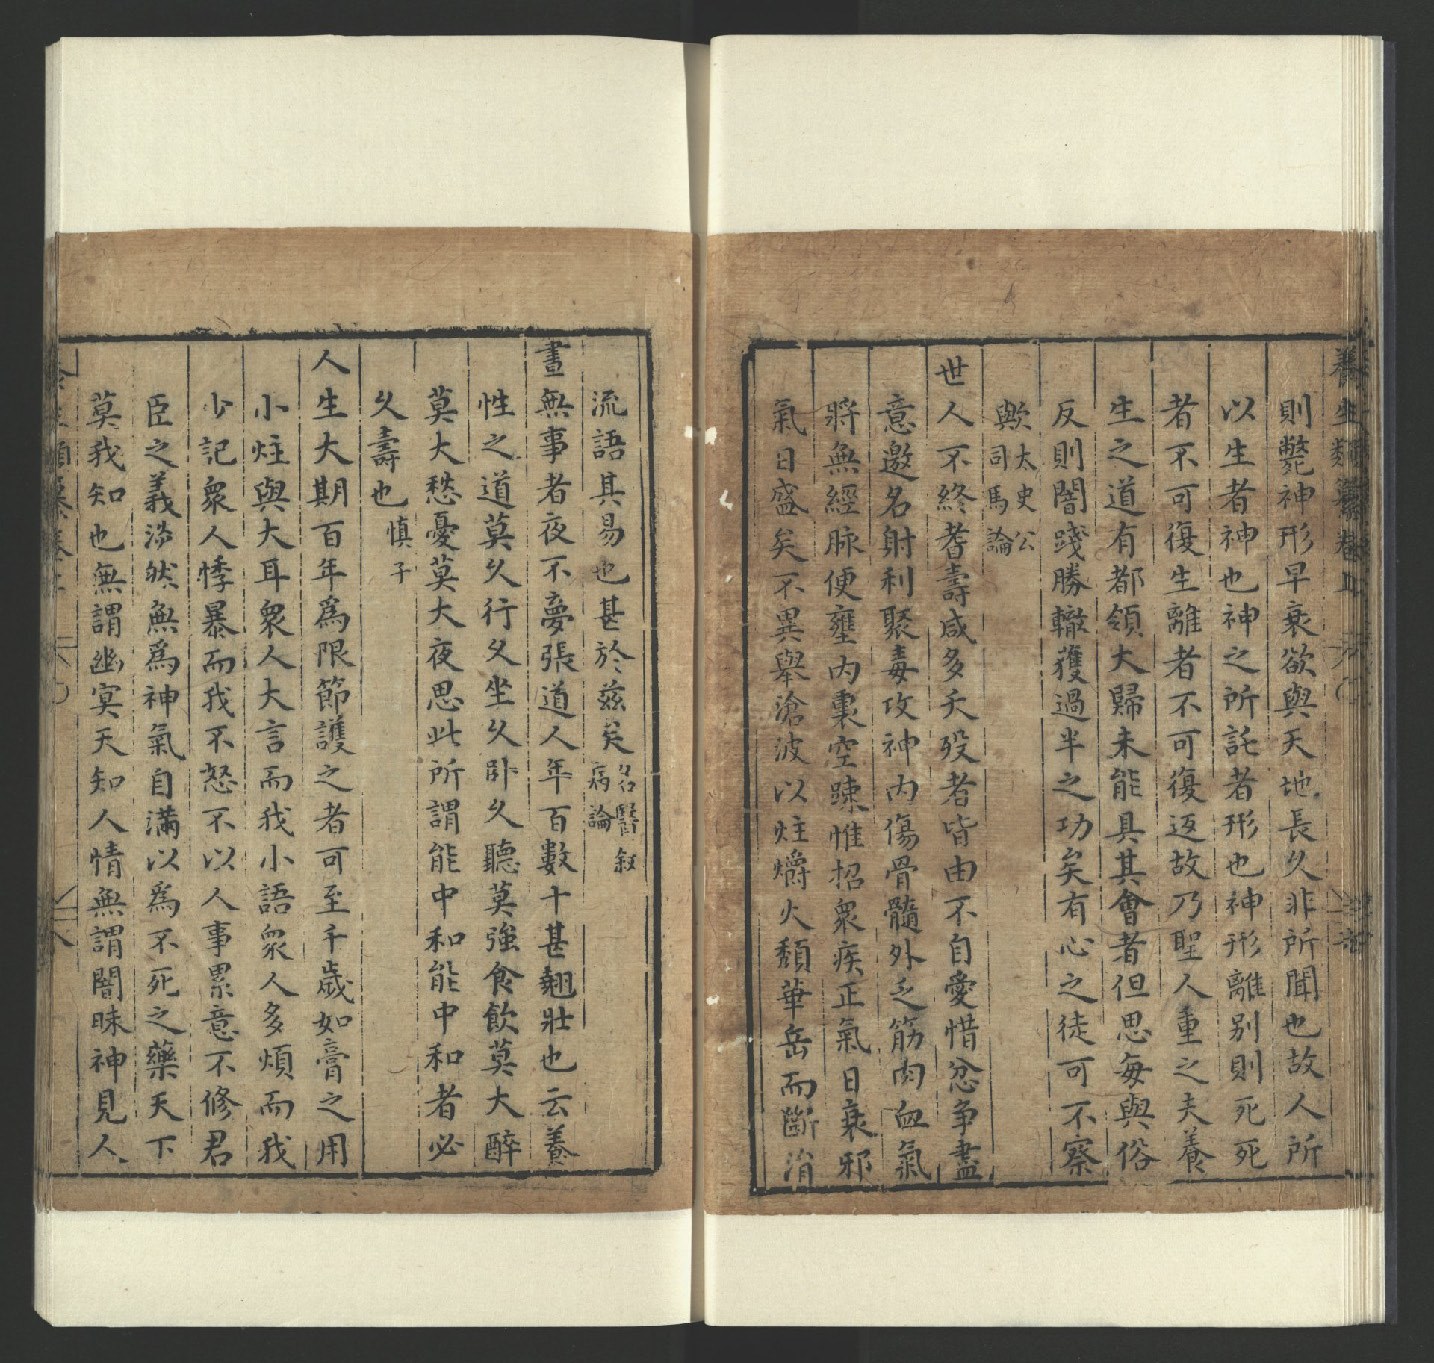 養生類纂卷上
則斃神形早衰欲與天地長久非所聞也故人所
以生者神也神之所託者形也神形離别則死死
者不可復生離者不可復返故乃聖人重之夫養
生之道有都領大歸未能具其會者但思每與俗
反則闇踐勝轍獲過半之功矣有心之徒可不察
歟太史公
司馬論
世人不終耆壽咸多夭歿者皆由不自愛惜忿争盡
意邀名射利聚毒攻神内傷骨髓外乏筋肉血氣
將無經脉便壅内裏空踈惟招衆疾正氣日衰邪
氣日盛矣不異舉滄波以炷爝火頽華岳而斷涓
流語其易也甚於兹矣名醫叙
病論
晝無事者夜不夢張道人年百數十甚翹壯也云養
性之道莫久行久坐久卧久聽莫強食飲莫大醉
莫大愁憂莫大夜思此所謂能中和能中和者必
久壽也慎子
人生大期百年爲限節護之者可至千歲如膏之用
小炷與大耳衆人大言而我小語衆人多煩而我
少記衆人悸暴而我不怒不以人事累意不修君
臣之義淡然無爲神氣自滿以爲不死之藥天下
莫我知也無謂幽冥天知人情無謂闇昧神見人